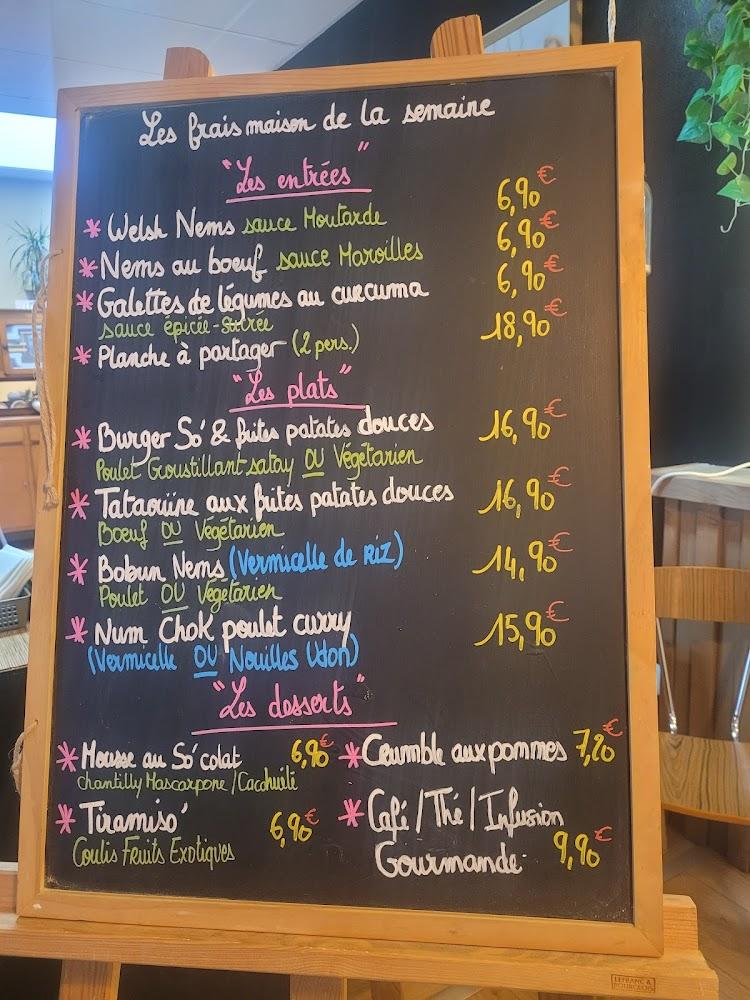 Les frais maison de la semaine
"Les entrées"
* Welsh Nems sauce Moutarde 6,90€
* Nems au boeuf sauce Maroilles 6,90€
* Galettes de légumes au curcuma 6,90€
sauce épicée-sucrée
* Planche à partager (2 pers.) 18,90€
"Les plats"
* Burger Só & frites patates douces 16,90€
Poulet Croustillant satay OU Végétarien
* Tataouïne aux frites patates douces 16,90€
Boeuf OU Végétarien
* Bobun Nems (Vermicelle de RIZ) 14,90€
Poulet OU Végétarien
* Num Chok poulet curry 15,90€
(Vermicelle OU Nouilles Udon)
"Les desserts"
* Mousse au Só'colat 6,90€
Chantilly Mascarpone/Cacahuète
* Tiramisó 6,90€
Coulis Fruits Exotiques
* Crumble aux pommes 7,20€
* Café/Thé/Infusion
Gourmande 9,90€
LEFRANC &
BOURGEOIS